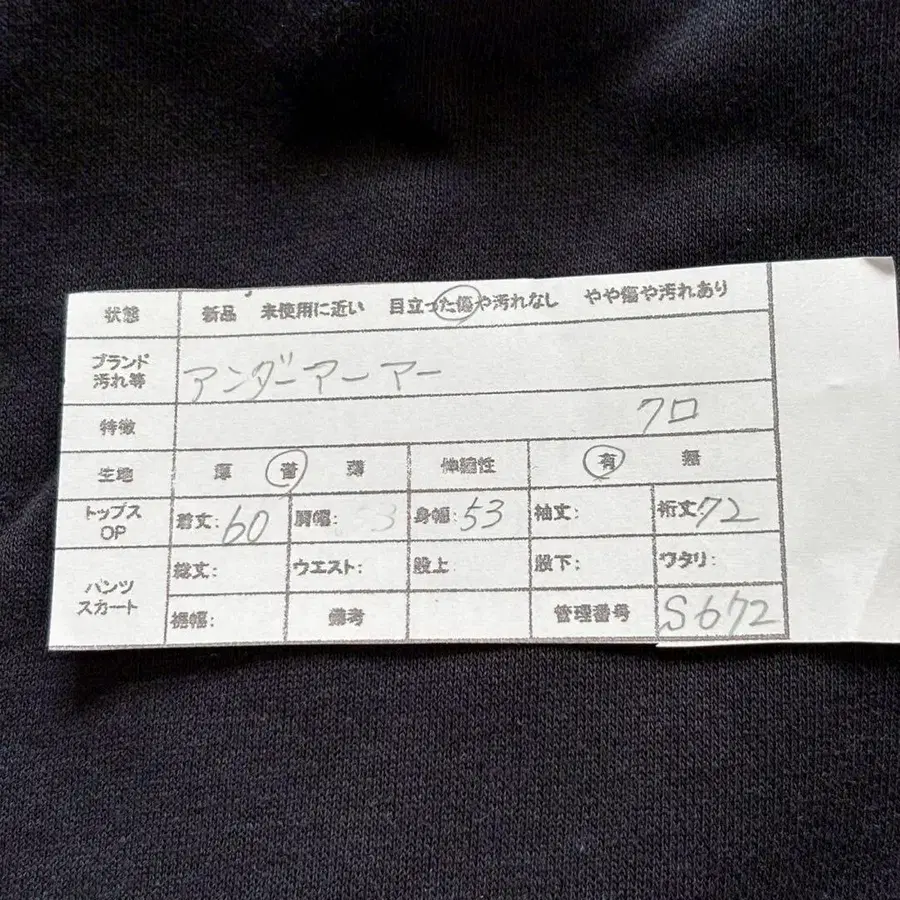 状態 新品 未使用に近い 目立った傷や汚れなし やや傷や汚れあり
ブランド
汚れ等 アンダーアーマー
特徴 クロ
生地 厚 普 薄 伸縮性 有 無
トップス
OP 着丈: 60 肩幅: 身幅: 53 袖丈: 裄丈: 72
パンツ
スカート 総丈: ウエスト: 股上 股下: ワタリ:
裾幅: 備考 管理番号 S672